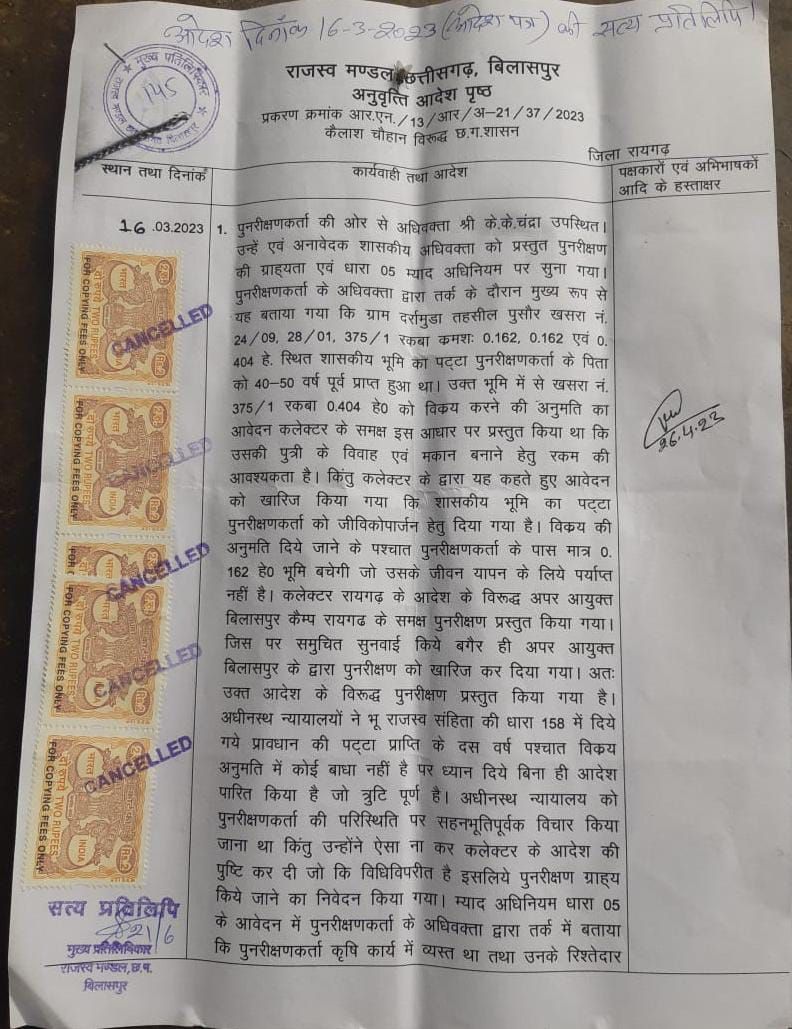 आदेश दिनाँक 16-3-2023 (आदेश पत्र) की सत्य प्रतिलिपि।
मुख्य प्रतिलिपिकार
145
राजस्व मण्डल छत्तीसगढ़, बिलासपुर
अनुवृत्ति आदेश पृष्ठ
प्रकरण क्रमांक आर.एन./13/आर/अ-21/37/2023
कैलाश चौहान विरूद्ध छ.ग.शासन
जिला रायगढ़
स्थान तथा दिनांक
कार्यवाही तथा आदेश
पक्षकारों एवं अभिभाषकों
आदि के हस्ताक्षर
16.03.2023
1. पुनरीक्षणकर्ता की ओर से अधिवक्ता श्री के.के.चंद्रा उपस्थित।
उन्हें एवं अनावेदक शासकीय अधिवक्ता को प्रस्तुत पुनरीक्षण
की ग्राह्यता एवं धारा 05 म्याद अधिनियम पर सुना गया।
पुनरीक्षणकर्ता के अधिवक्ता द्वारा तर्क के दौरान मुख्य रूप से
यह बताया गया कि ग्राम दर्रामुडा तहसील पुसौर खसरा नं.
24/09, 28/01, 375/1 रकबा कमशः 0.162, 0.162 एवं 0.
404 हे. स्थित शासकीय भूमि का पट्टा पुनरीक्षणकर्ता के पिता
को 40-50 वर्ष पूर्व प्राप्त हुआ था। उक्त भूमि में से खसरा नं.
375/1 रकबा 0.404 हे0 को विक्रय करने की अनुमति का
आवेदन कलेक्टर के समक्ष इस आधार पर प्रस्तुत किया था कि
उसकी पुत्री के विवाह एवं मकान बनाने हेतु रकम की
आवश्यकता है। किंतु कलेक्टर के द्वारा यह कहते हुए आवेदन
को खारिज किया गया कि शासकीय भूमि का पट्टा
पुनरीक्षणकर्ता को जीविकोपार्जन हेतु दिया गया है। विक्रय की
अनुमति दिये जाने के पश्चात पुनरीक्षणकर्ता के पास मात्र 0.
162 हे0 भूमि बचेगी जो उसके जीवन यापन के लिये पर्याप्त
नहीं है। कलेक्टर रायगढ़ के आदेश के विरूद्ध अपर आयुक्त
बिलासपुर कैम्प रायगढ के समक्ष पुनरीक्षण प्रस्तुत किया गया।
जिस पर समुचित सुनवाई किये बगैर ही अपर आयुक्त
बिलासपुर के द्वारा पुनरीक्षण को खारिज कर दिया गया। अतः
उक्त आदेश के विरूद्ध पुनरीक्षण प्रस्तुत किया गया है।
अधीनस्थ न्यायालयों ने भू राजस्व संहिता की धारा 158 में दिये
गये प्रावधान की पट्टा प्राप्ति के दस वर्ष पश्चात विक्रय
अनुमति में कोई बाधा नहीं है पर ध्यान दिये बिना ही आदेश
पारित किया है जो त्रुटि पूर्ण है। अधीनस्थ न्यायालय को
पुनरीक्षणकर्ता की परिस्थिति पर सहनभूतिपूर्वक विचार किया
जाना था किंतु उन्होंने ऐसा ना कर कलेक्टर के आदेश की
पुष्टि कर दी जो कि विधिविपरीत है इसलिये पुनरीक्षण ग्राह्य
किये जाने का निवेदन किया गया। म्याद अधिनियम धारा 05
के आवेदन में पुनरीक्षणकर्ता के अधिवक्ता द्वारा तर्क में बताया
कि पुनरीक्षणकर्ता कृषि कार्य में व्यस्त था तथा उनके रिश्तेदार
26.4.23
भारत
दो रुपये TWO RUPEES
INDIA
FOR COPYING FEES ONLY
CANCELLED
भारत
दो रुपये TWO RUPEES
INDIA
FOR COPYING FEES ONLY
CANCELLED
CANCELLED
भारत
दो रुपये TWO RUPEES
INDIA
FOR COPYING FEES ONLY
CANCELLED
भारत
दो रुपये TWO RUPEES
INDIA
FOR COPYING FEES ONLY
CANCELLED
सत्य प्रतिलिपि
21/6
मुख्य प्रतिलिपिकार
राजस्व मण्डल,छ.ग.
बिलासपुर